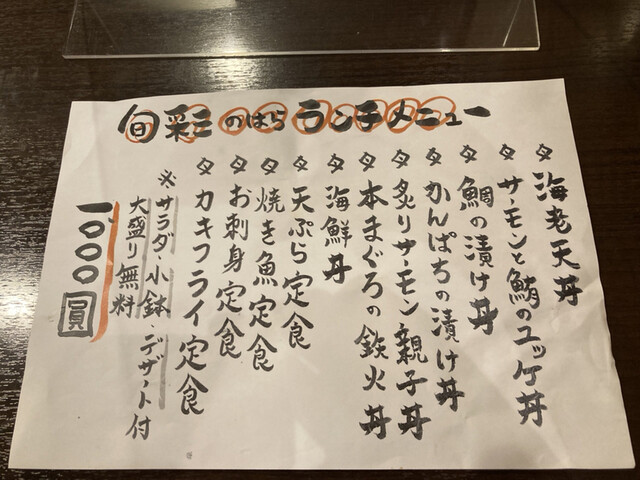 旬彩のはら ランチメニュー
海老天丼
サーモンと鮪のユッケ丼
鯛の漬け丼
かんぱちの漬け丼
炙りサーモン親子丼
本まぐろの鉄火丼
海鮮丼
天ぷら定食
焼き魚定食
お刺身定食
カキフライ定食
※サラダ・小鉢・デザート付
大盛り無料
一〇〇〇圓